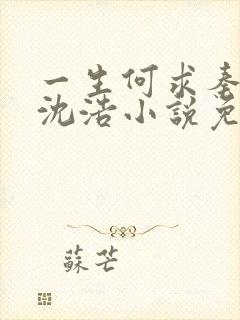 一生何求秦
沈浩小說免
蘇芒